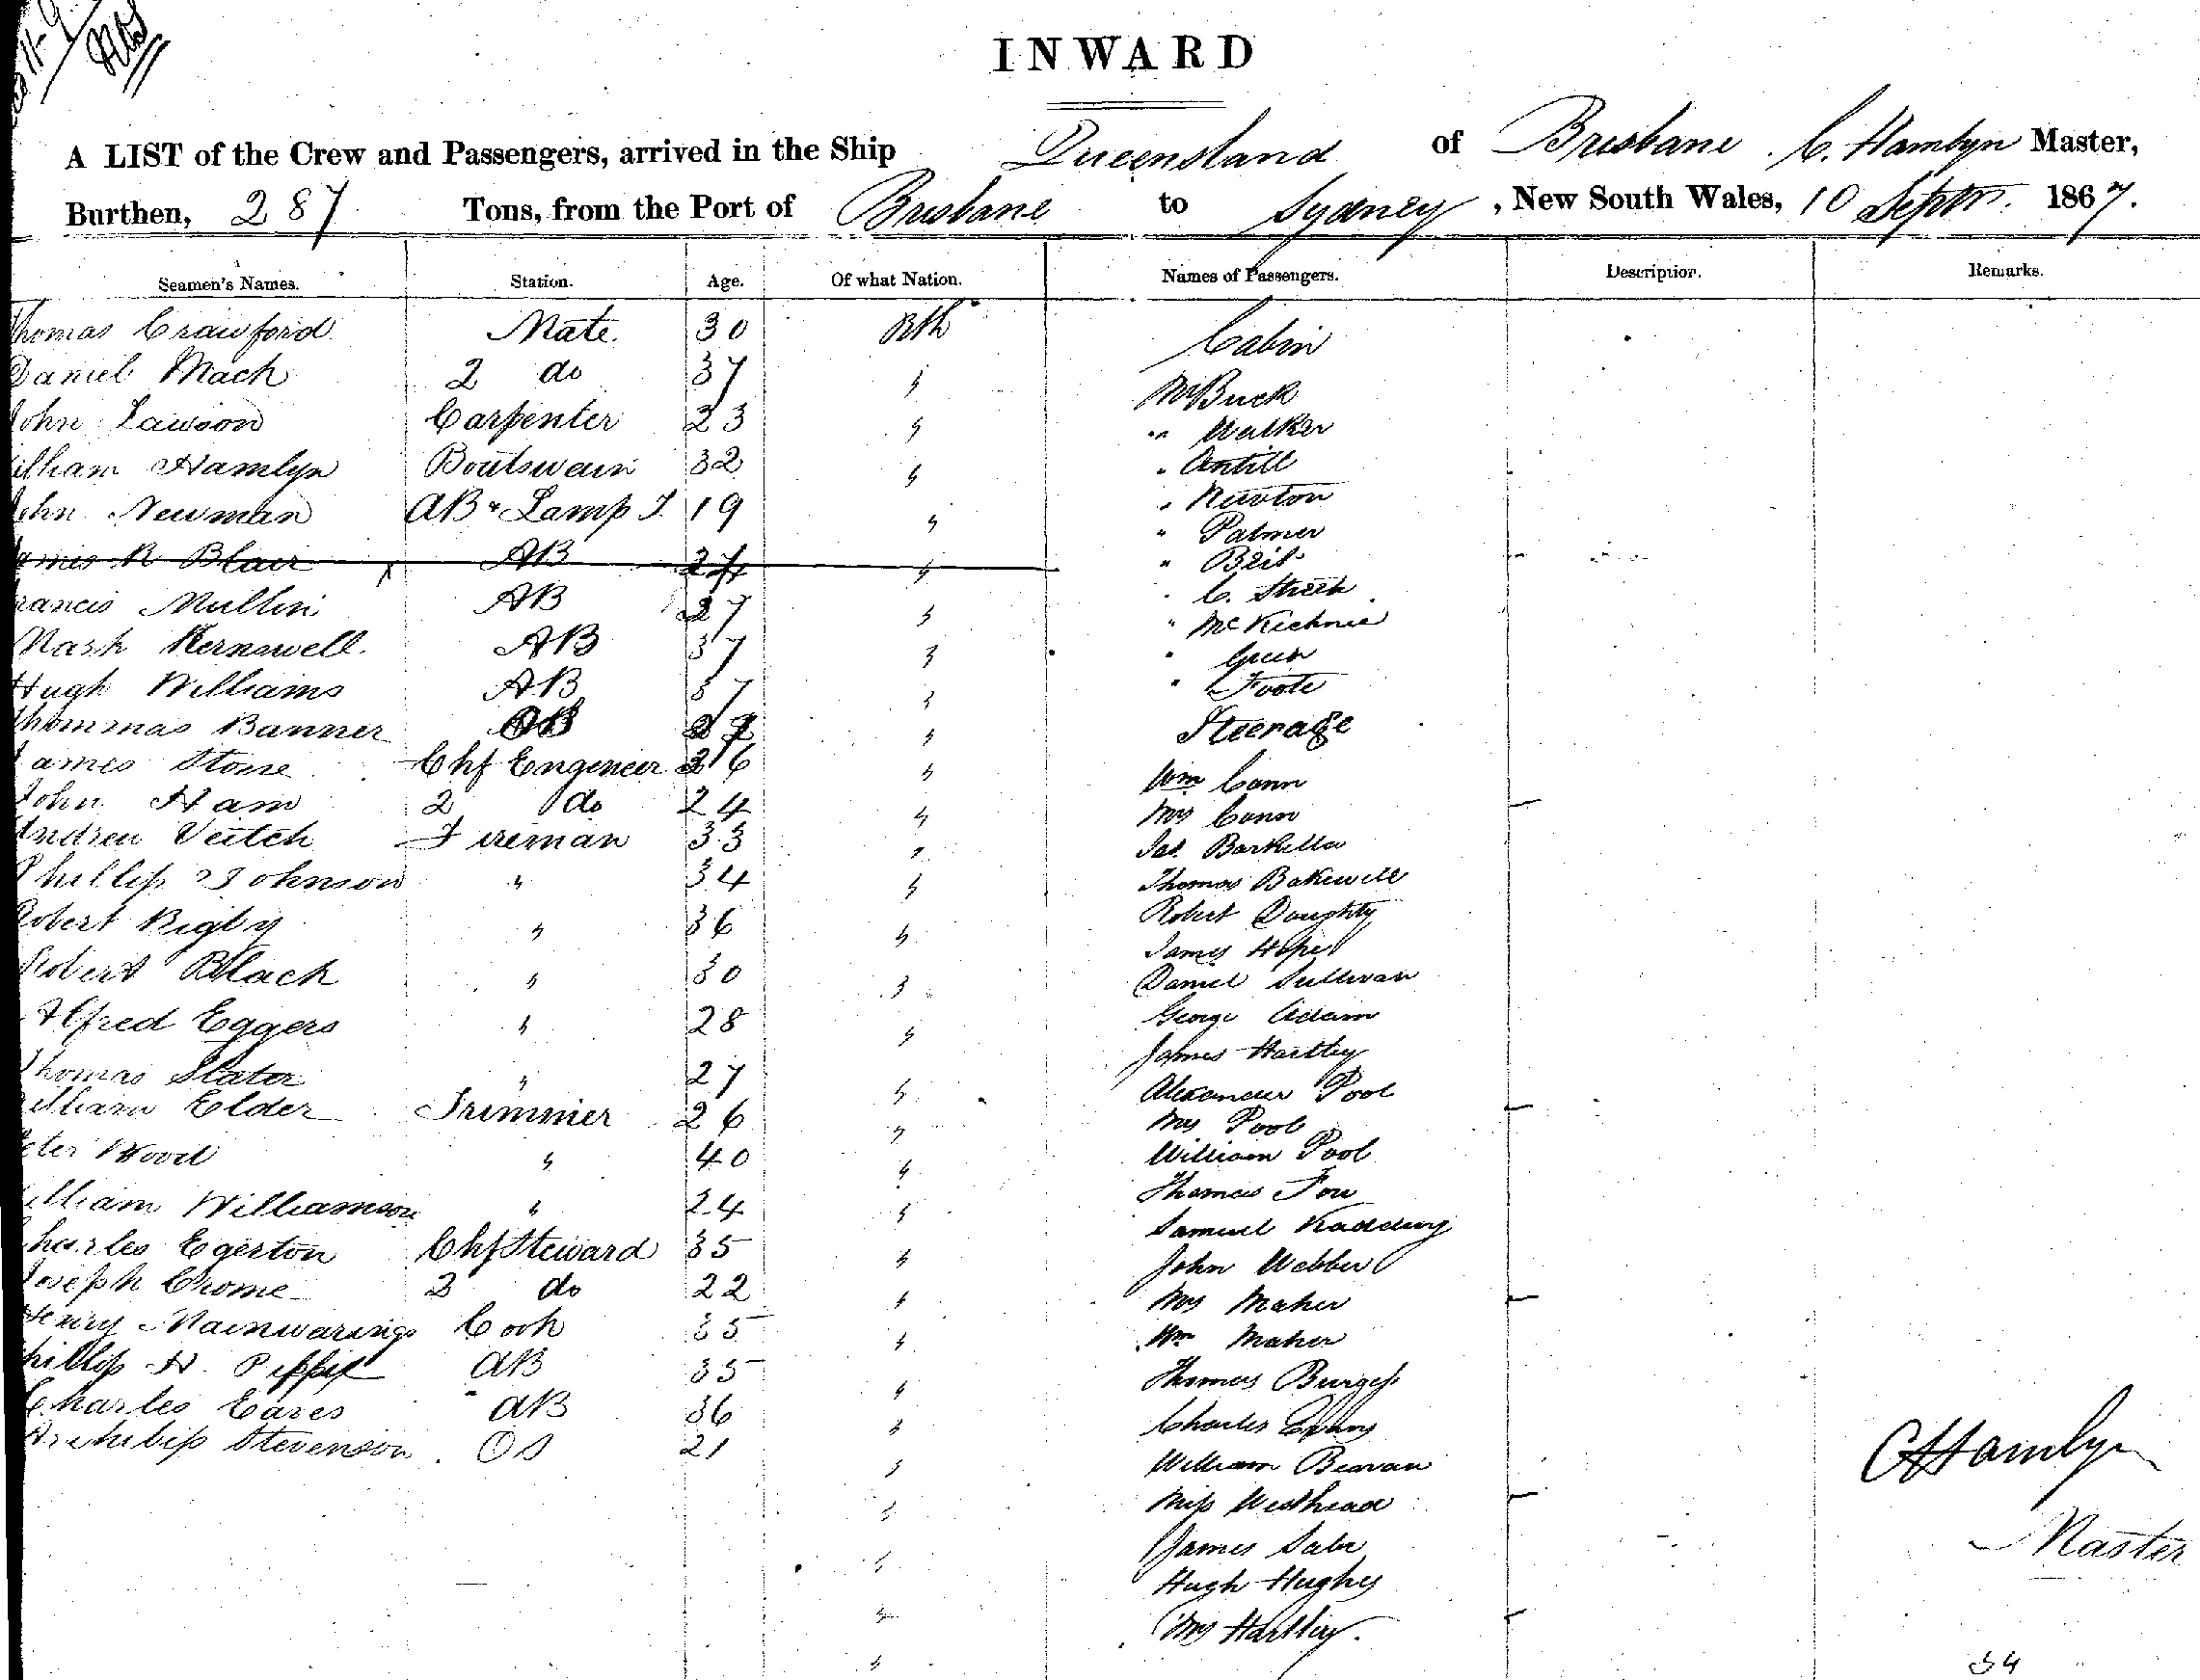 INWARD
A LIST of the Crew and Passengers, arrived in the Ship Queensland of Brisbane C. Hamlyn Master,
Burthen, 287 Tons, from the Port of Brisbane to Sydney, New South Wales, 10 Septr. 1867.
Seamen's Names. Station. Age. Of what Nation. Names of Passengers. Description. Remarks.
Thomas Crawford Mate. 30 Bth Cabin
Daniel Mach 2 do 37 " Mr Buck
John Lawson Carpenter 23 " " Walker
William Hamlyn Boatswain 32 " " Antill
John Newman AB & Lamp T. 19 " " Newton
James R Blair AB 24 " " Palmer
" Beit
Francis Mullin AB 27 " " C. Street
Nash Kernswell. AB 37 " " McKechnie
" Green
Hugh Williams AB 37 " " Foote
Thommas Banner AB " Steerage
James Stone Chf Engeneer 36 " Wm Cann
John Ham 2 do 24 " Mrs Cann
Andrew Veitch Fireman 33 " Jas.
Phillip Johnson " 34 " Thomas Bakewell
Robert Rigby " 36 " Robert Doughty
James Hope
Robert Black " 30 " Daniel Sullivan
Alfred Eggers " 28 " George Adam
James Hartley
Thomas Slater " 27 " Alexander Pool
William Elder Trimmer 26 " Mrs Pool
Peter Wood " 40 " William Pool
William Williamson " 24 " Thomas
Charles Egerton Chf Steward 35 " Samuel
Joseph Crome 2 do 22 " John Webber
Mrs Maher
Henry Mainwaring Cook 35 " Wm Maher
Phillip H. AB 35 " Thomas Burgess
Charles Eaves AB 36 " Charles Evans
Archibip Stevenson OS 21 " William Beavan
CHamlyn
" Miss Westhead
Master
" James
Hugh Hughes
" Mrs Hartley.
" 34